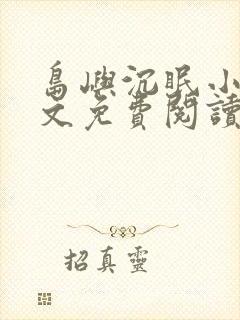 島嶼沉眠小
文免費閱讀
招真靈